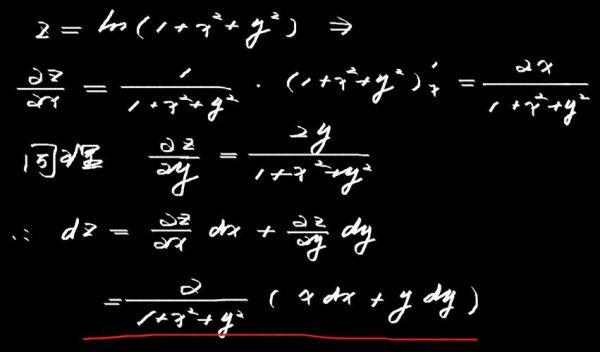 z = ln(1+x²+y²) ⇒
∂z/∂x = 1/(1+x²+y²) · (1+x²+y²)'ₓ = 2x/(1+x²+y²)
同理 ∂z/∂y = 2y/(1+x²+y²)
∴ dz = ∂z/∂x dx + ∂z/∂y dy
= 2/(1+x²+y²) (x dx + y dy)